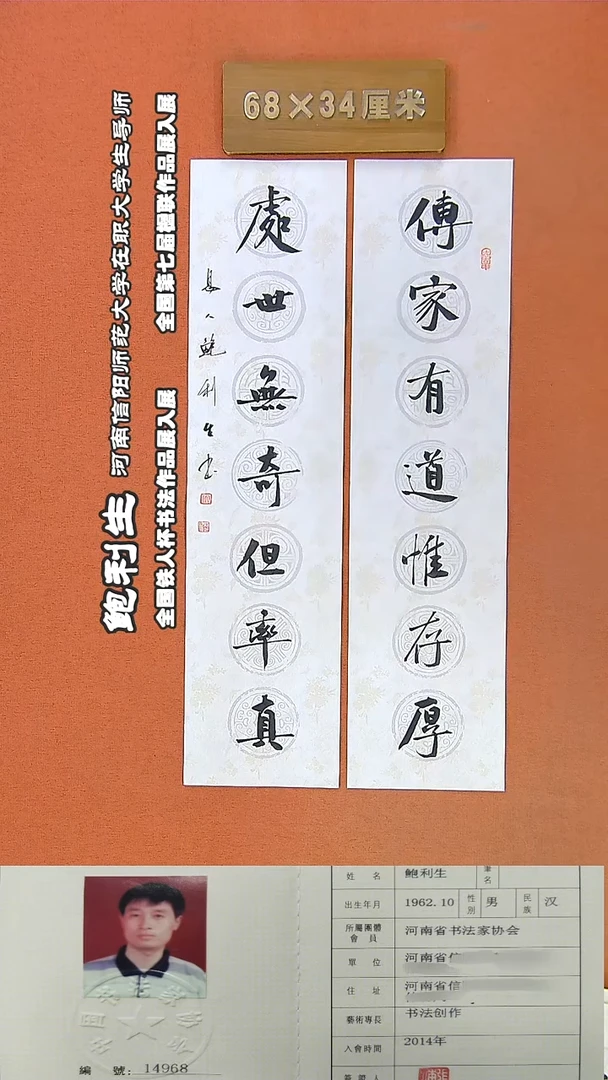 68×34厘米
傳家有道惟存厚
處世無奇但率真
息人鲍利生书
鲍利生 河南信阳师范大学在职大学生导师
全国铁人杯书法作品展入展 全国第七届楹联作品展入展
姓 名 鲍利生 筆名
出生年月 1962.10 性別 男 民族 汉
所屬團體會員 河南省书法家协会
單 位 河南省信
住 址 河南省信
藝術專長 书法创作
入會時間 2014年
編 號：14968